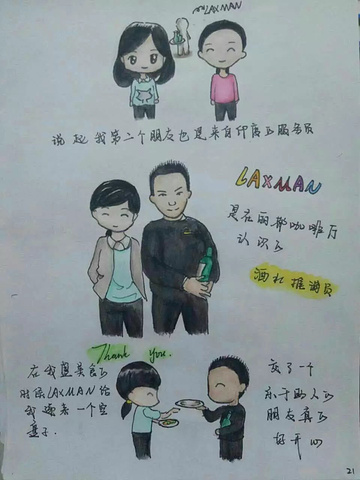 LAXMAN
说起我第二个朋友也是来自什房的服务员
LAXMAN
是在丽都咖啡厅
认识的
酒水推销员
Thank you.
在我盛美食的
时候LAXMAN给
我递来一个空
盘子.
交了一个
乐于助人的
朋友真的
好开心
21